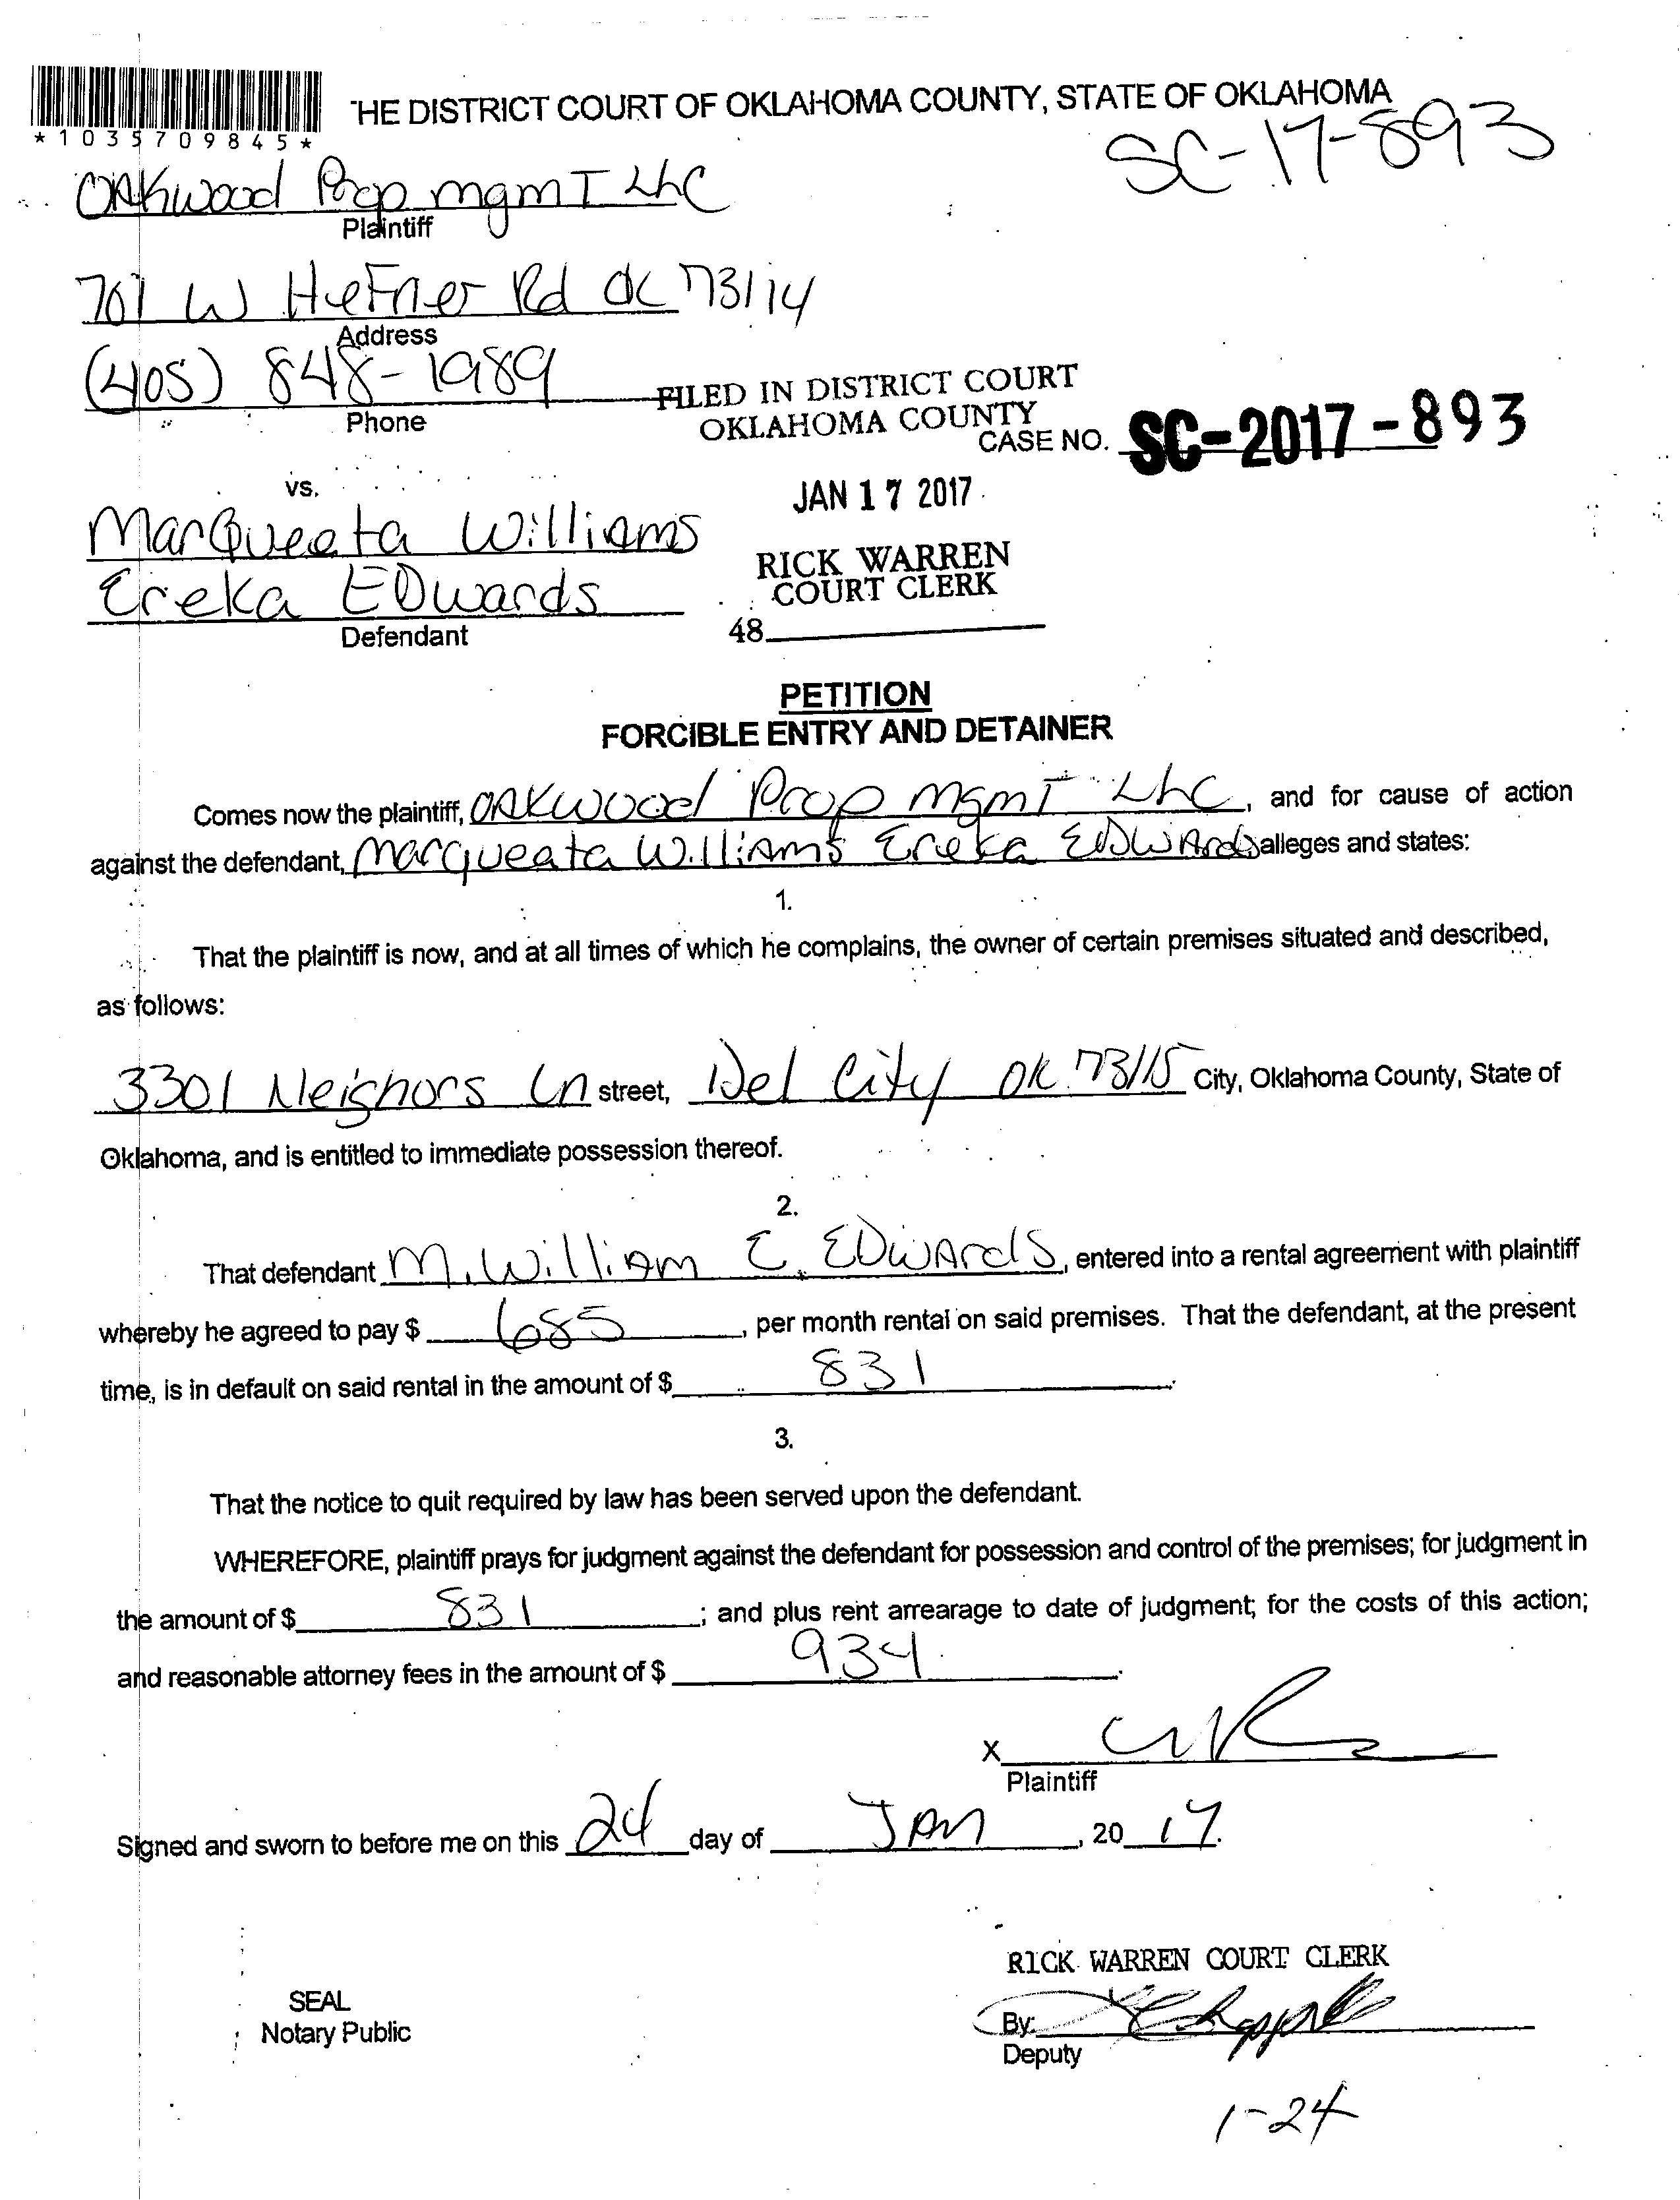 *1035709845*
THE DISTRICT COURT OF OKLAHOMA COUNTY, STATE OF OKLAHOMA
SC-17-893
OAKwood Prop mgmT LLC
Plaintiff
701 W HeFner Rd OK 73114
Address
(405) 848-1989
Phone
FILED IN DISTRICT COURT
OKLAHOMA COUNTY
CASE NO. SC-2017-893
vs.
JAN 17 2017
MarQueeta Williams
RICK WARREN
COURT CLERK
Ereka EDwards
Defendant
48
PETITION
FORCIBLE ENTRY AND DETAINER
Comes now the plaintiff, OAKwood Prop mgmT LLC, and for cause of action
against the defendant, Marqueata Williams Ereka EDWARds alleges and states:
1.
That the plaintiff is now, and at all times of which he complains, the owner of certain premises situated and described,
as follows:
3301 Neighors Ln street, Del City OK 73115 City, Oklahoma County, State of
Oklahoma, and is entitled to immediate possession thereof.
2.
That defendant M. William E. EDwards, entered into a rental agreement with plaintiff
whereby he agreed to pay $ 685, per month rental on said premises. That the defendant, at the present
time, is in default on said rental in the amount of $ 831.
3.
That the notice to quit required by law has been served upon the defendant.
WHEREFORE, plaintiff prays for judgment against the defendant for possession and control of the premises; for judgment in
the amount of $ 831; and plus rent arrearage to date of judgment; for the costs of this action;
and reasonable attorney fees in the amount of $ 934.
X
Plaintiff
Signed and sworn to before me on this 24 day of JAN, 20 17.
RICK WARREN COURT CLERK
SEAL
Notary Public
By:
Deputy
1-24